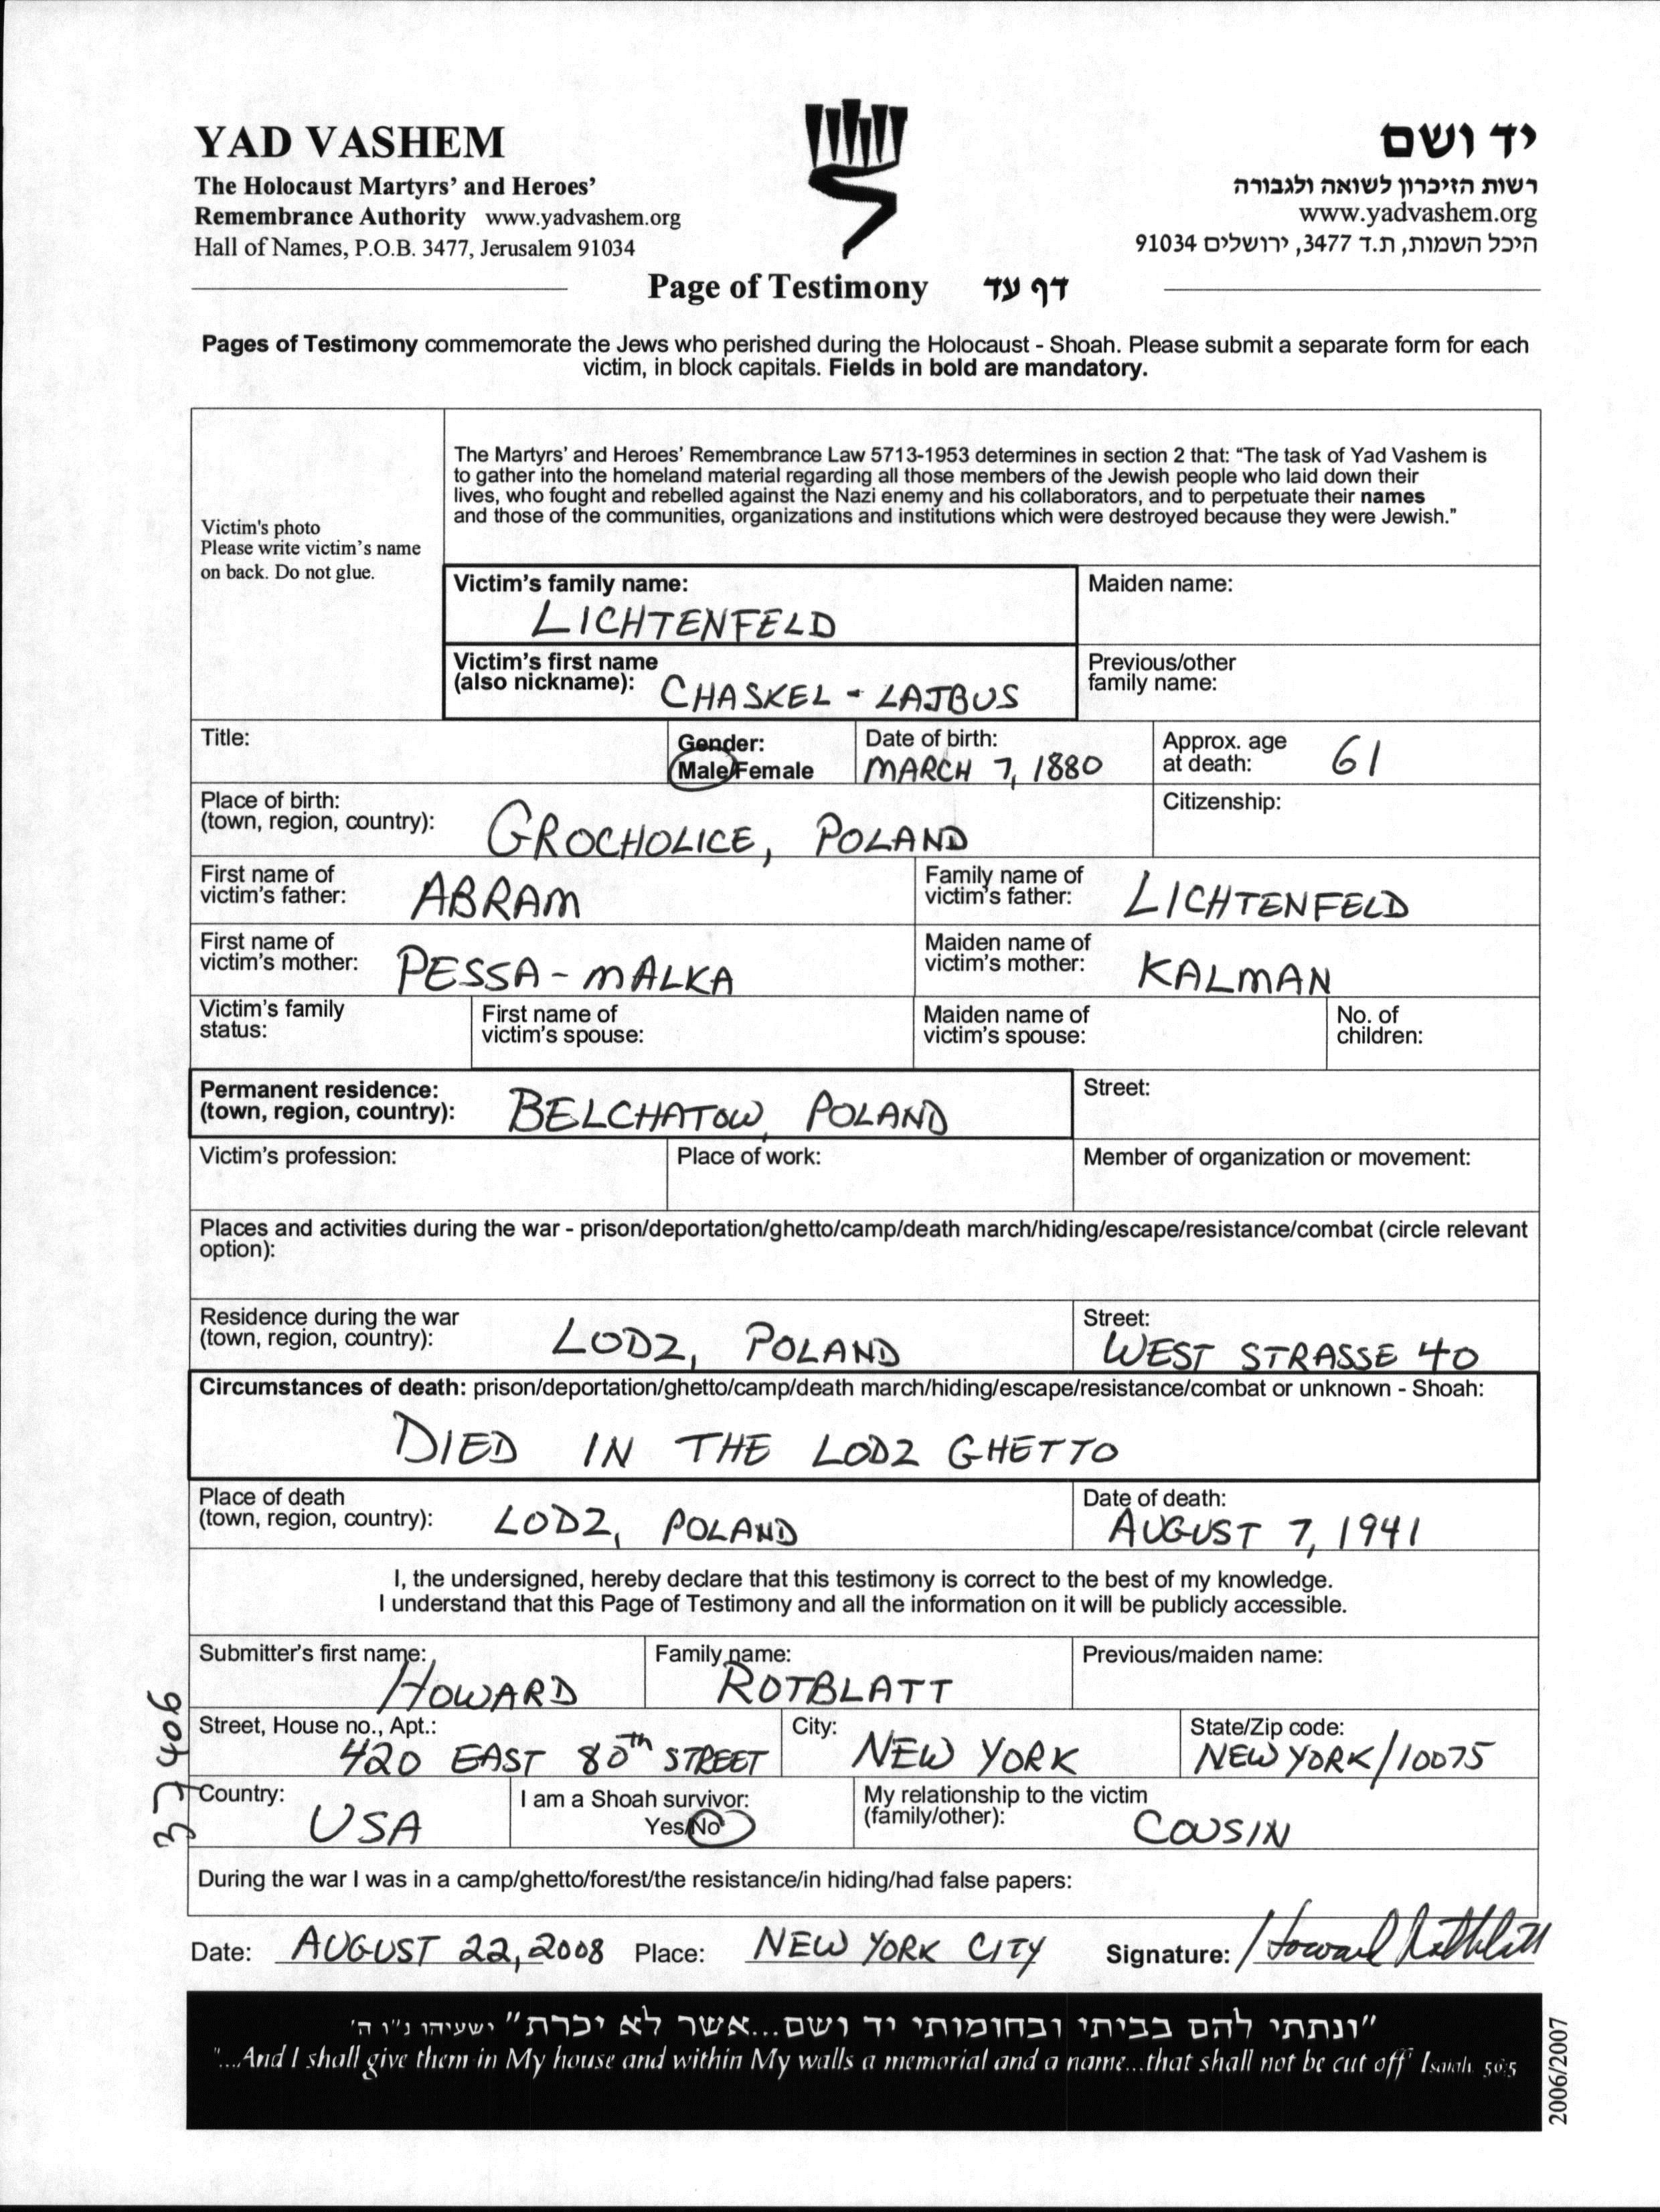 YAD VASHEM
The Holocaust Martyrs' and Heroes'
Remembrance Authority www.yadvashem.org
Hall of Names, P.O.B. 3477, Jerusalem 91034
יד ושם
רשות הזיכרון לשואה ולגבורה
www.yadvashem.org
היכל השמות, ת.ד 3477, ירושלים 91034
Page of Testimony דף עד
Pages of Testimony commemorate the Jews who perished during the Holocaust - Shoah. Please submit a separate form for each
victim, in block capitals. Fields in bold are mandatory.
Victim's photo
Please write victim's name
on back. Do not glue.
The Martyrs' and Heroes' Remembrance Law 5713-1953 determines in section 2 that: "The task of Yad Vashem is
to gather into the homeland material regarding all those members of the Jewish people who laid down their
lives, who fought and rebelled against the Nazi enemy and his collaborators, and to perpetuate their names
and those of the communities, organizations and institutions which were destroyed because they were Jewish."
Victim's family name:
LICHTENFELD
Maiden name:
Victim's first name
(also nickname): CHASKEL - LAJBUS
Previous/other
family name:
Title:
Gender:
Male/Female
Date of birth:
MARCH 7, 1880
Approx. age
at death: 61
Place of birth:
(town, region, country): GROCHOLICE, POLAND
Citizenship:
First name of
victim's father: ABRAM
Family name of
victim's father: LICHTENFELD
First name of
victim's mother: PESSA-MALKA
Maiden name of
victim's mother: KALMAN
Victim's family
status:
First name of
victim's spouse:
Maiden name of
victim's spouse:
No. of
children:
Permanent residence:
(town, region, country): BELCHATOW, POLAND
Street:
Victim's profession:
Place of work:
Member of organization or movement:
Places and activities during the war - prison/deportation/ghetto/camp/death march/hiding/escape/resistance/combat (circle relevant
option):
Residence during the war
(town, region, country): LODZ, POLAND
Street:
WEST STRASSE 40
Circumstances of death: prison/deportation/ghetto/camp/death march/hiding/escape/resistance/combat or unknown - Shoah:
DIED IN THE LODZ GHETTO
Place of death
(town, region, country): LODZ, POLAND
Date of death:
AUGUST 7, 1941
I, the undersigned, hereby declare that this testimony is correct to the best of my knowledge.
I understand that this Page of Testimony and all the information on it will be publicly accessible.
Submitter's first name:
HOWARD
Family name:
ROTBLATT
Previous/maiden name:
Street, House no., Apt.:
420 EAST 80th STREET
City:
NEW YORK
State/Zip code:
NEW YORK/10075
Country:
USA
I am a Shoah survivor:
Yes/No
My relationship to the victim
(family/other): COUSIN
During the war I was in a camp/ghetto/forest/the resistance/in hiding/had false papers:
Date: AUGUST 22, 2008 Place: NEW YORK CITY Signature: Howard Rotblatt
37406
"ונתתי להם בביתי ובחומותי יד ושם...אשר לא יכרת" ישעיהו נ"ו ה'
"...And I shall give them in My house and within My walls a memorial and a name...that shall not be cut off" Isaiah 56:5
2006/2007